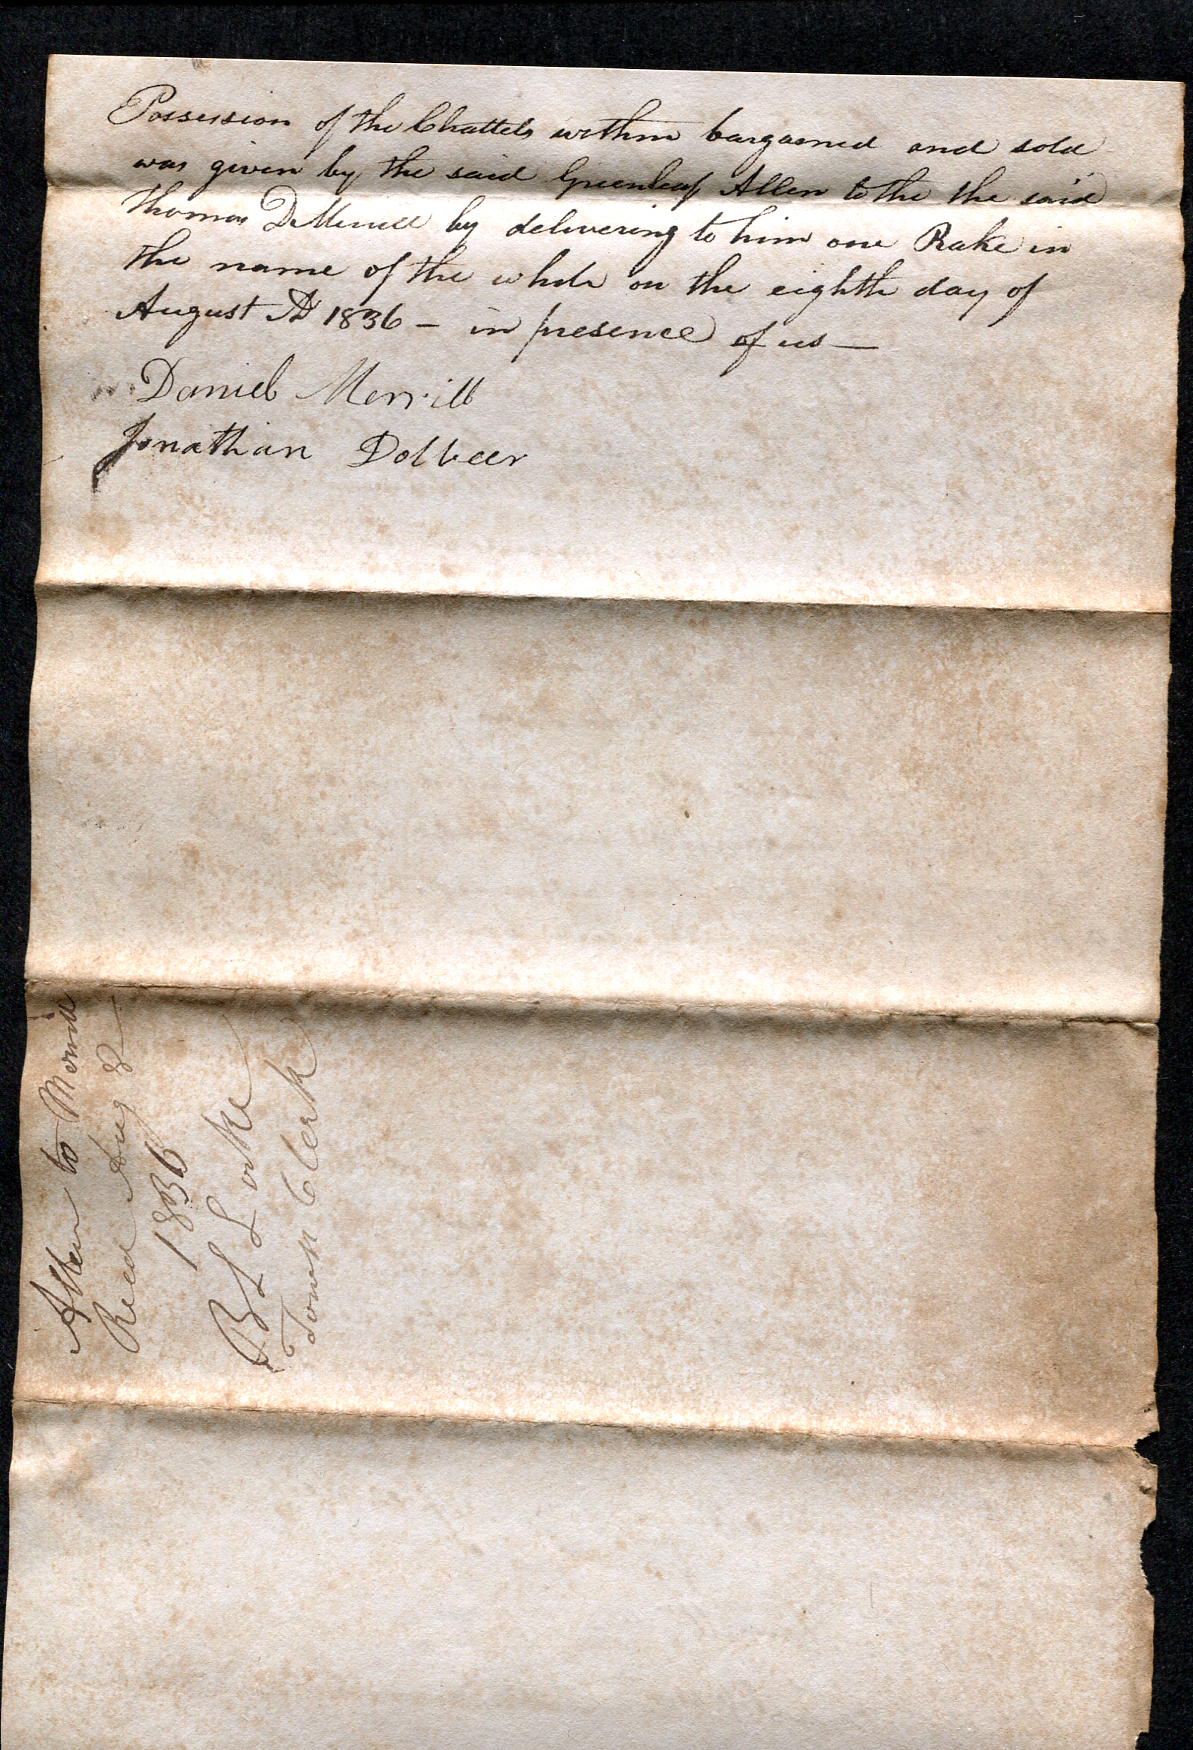 Possession of the Chattels within bargained and sold
was given by the said Greenleaf Allen to the the said
Thomas D Merrill by delivering to him one Rake in
the name of the whole on the eighth day of
August AD 1836 – in presence of us —
Daniel Merrill
Jonathan Dolbeer
Allen to Merrill
Recd Aug 8
1836
B L Locke
Town Clerk